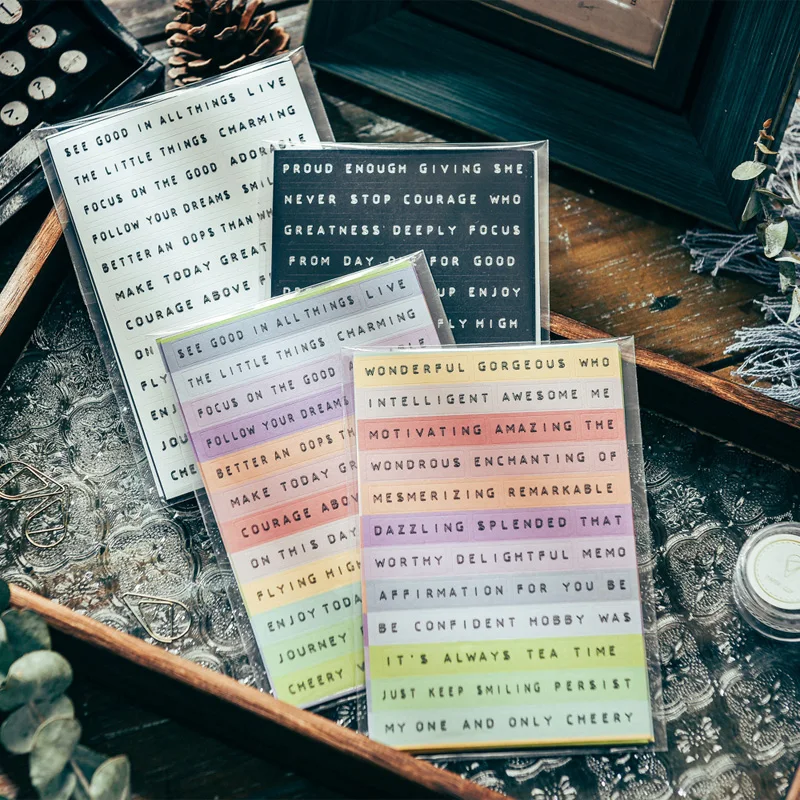 SEE GOOD IN ALL THINGS LIVE
THE LITTLE THINGS CHARMING
FOCUS ON THE GOOD ADORABLE
FOLLOW YOUR DREAMS
BETTER AN OOPS THAN
MAKE TODAY GREAT
COURAGE ABOVE
ON
FLY
ENJ
JOU
CHE
PROUD ENOUGH GIVING SHE
NEVER STOP COURAGE WHO
GREATNESS DEEPLY FOCUS
FROM DAY FOR GOOD
UP ENJOY
FLY HIGH
SEE GOOD IN ALL THINGS LIVE
THE LITTLE THINGS CHARMING
FOCUS ON THE GOOD
FOLLOW YOUR DREAMS
BETTER AN OOPS TH
MAKE TODAY GR
COURAGE ABOV
ON THIS DAY
FLYING HIGH
ENJOY TODA
JOURNEY
CHEERY
WONDERFUL GORGEOUS WHO
INTELLIGENT AWESOME ME
MOTIVATING AMAZING THE
WONDROUS ENCHANTING OF
MESMERIZING REMARKABLE
DAZZLING SPLENDED THAT
WORTHY DELIGHTFUL MEMO
AFFIRMATION FOR YOU BE
BE CONFIDENT HOBBY WAS
IT'S ALWAYS TEA TIME
JUST KEEP SMILING PERSIST
MY ONE AND ONLY CHEERY